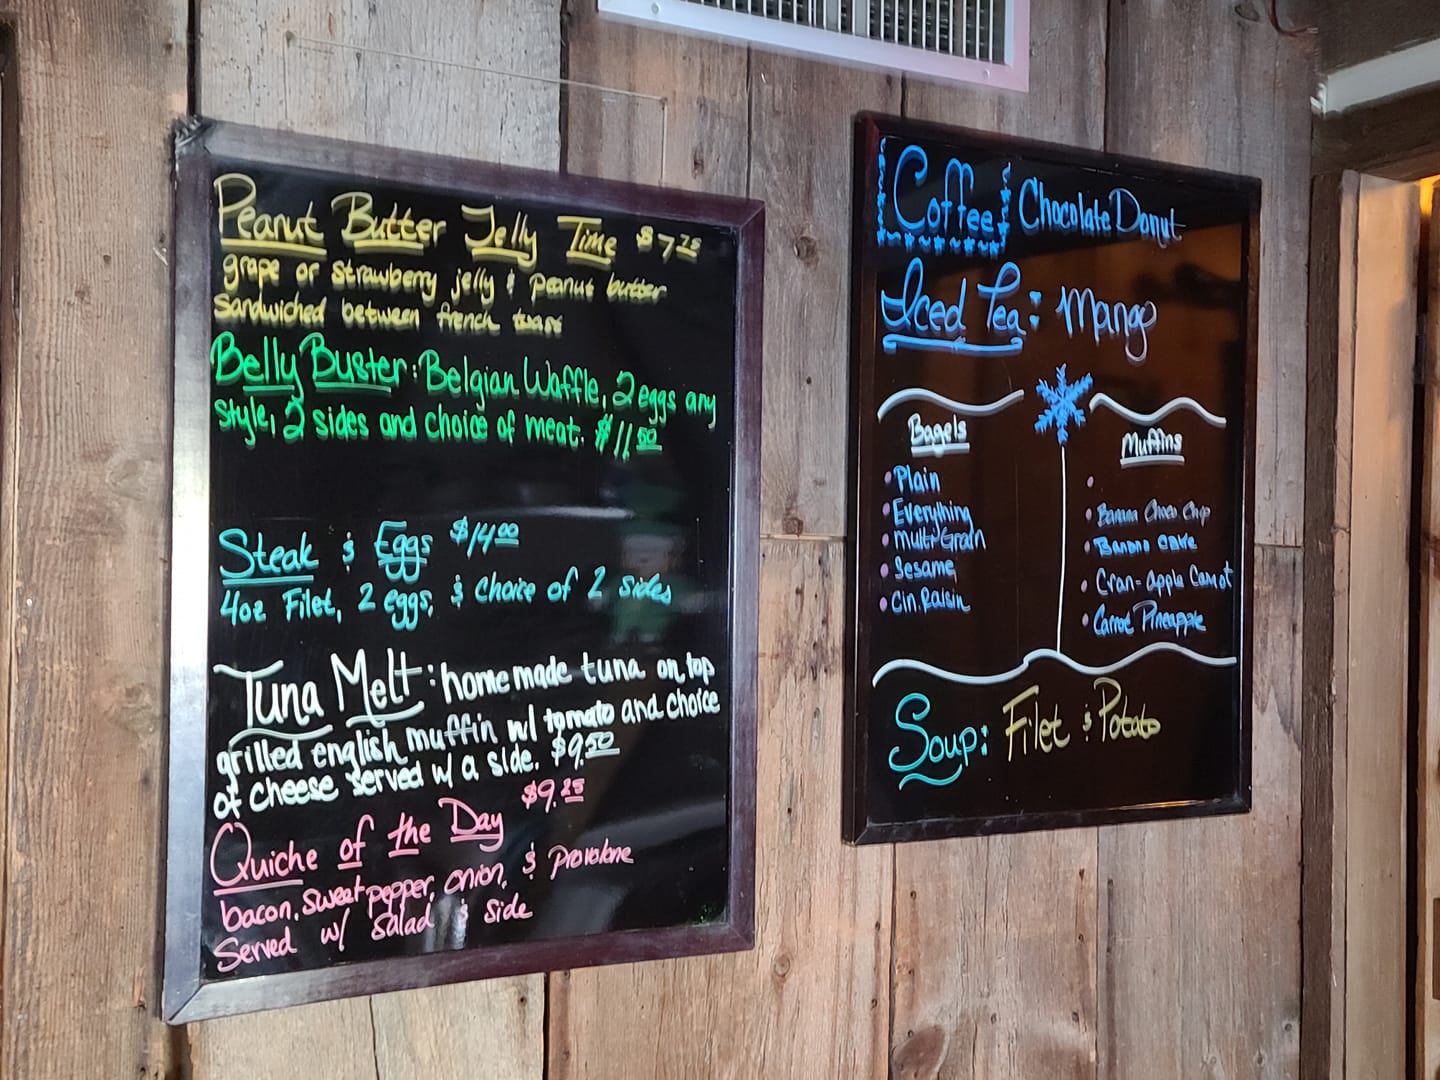 Peanut Butter Jelly Time $7.25
grape or strawberry jelly & peanut butter
sandwiched between french toast
Belly Buster: Belgian Waffle, 2 eggs any
style, 2 sides and choice of meat. $11.50
Steak & Eggs $14.00
4oz Filet, 2 eggs, & choice of 2 sides
Tuna Melt: homemade tuna on top
grilled english muffin w/ tomato and choice
of cheese served w/ a side. $9.50
Quiche of the Day $9.25
bacon, sweet pepper, onion, & provolone
Served w/ salad & side
Coffee: Chocolate Donut
Iced Tea: Mango
Bagels
• Plain
• Everything
• Multi Grain
• Sesame
• Cin. Raisin
Muffins
•
• Banana Choco Chip
• Banana Cake
• Cran-Apple Carrot
• Carrot Pineapple
Soup: Filet & Potato